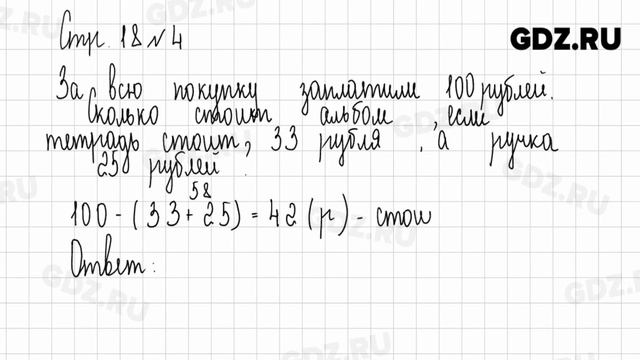 Стр. 18 № 4
GDZ.RU
За всю покупку заплатили 100 рублей.
Сколько стоит альбом, если
тетрадь стоит, 33 рубля, а ручка
25 рублей.
58
100 - (33 + 25) = 42 (р) - стои
Ответ: